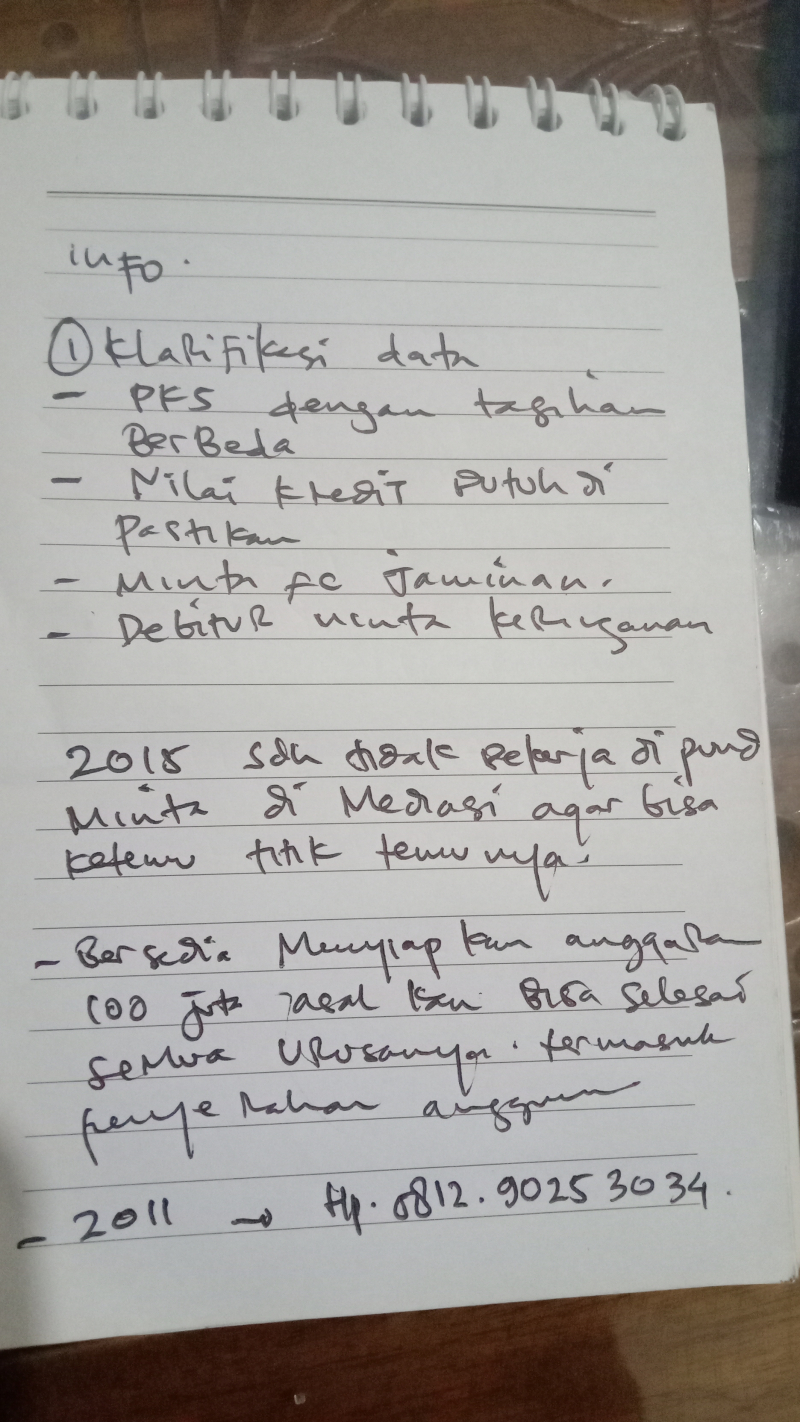 info.
① Klarifikasi data
- PKS dengan tagihan
BerBeda
- Nilai kredit butuh di
Pastikan
- Minta fc Jaminan.
- Debitur minta keringanan
2015 sdh tidak bekerja di
Minta di Mediasi agar bisa
ketemu titik temunya.
- Bersedia Menyiapkan anggaran
100 juta asal kan bisa selesai
semua urusannya. termasuk
penyerahan
- 2011 → Hp. 0812.90253034.